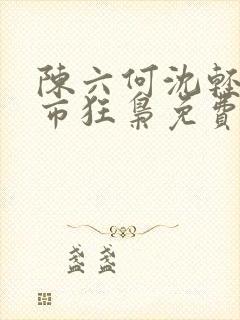 陳六何沈輕
市狂梟免費
盞盞